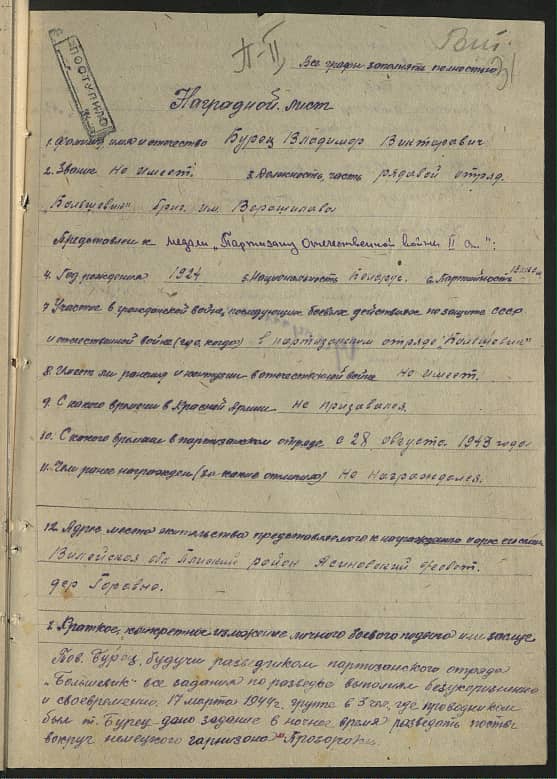 ПОСТУПИЛО
Все графы заполнять полностью
Наградной лист
1. Фамилия, имя и отчество Бурец Владимир Викторович
2. Звание Не имеет. 3. Должность, часть рядовой отряд.
"Большевик" бриг. им. Ворошилова
Представлен к медали "Партизану Отечественной войны II ст.":
4. Год рождения 1924 5. Национальность белорус. 6. Партийность
7. Участие в гражданской войне, последующих боевых действиях по защите СССР
и отечественной войне (где, когда) в партизанском отряде "Большевик"
8. Имеет ли ранения и контузии в отечественной войне не имеет.
9. С какого времени в Красной Армии не призывался.
10. С какого времени в партизанском отряде с 28 августа 1943 года
11. Чем ранее награжден (за какие отличия) не награждался.
12. Адрес места жительства представляемого к награждению
Вилейская обл. район Асиновский с/совет.
дер
2. Краткое, конкретное изложение личного боевого подвига или заслуг
Тов. Бурец, будучи разведчиком партизанского отряда
"Большевик" все задания по разведке выполнял безукоризненно
и своевременно. 17 марта 1944г. группе в 5 чел, где проводником
был т. Бурец дано задание в ночное время разведать посты
вокруг немецкого гарнизона